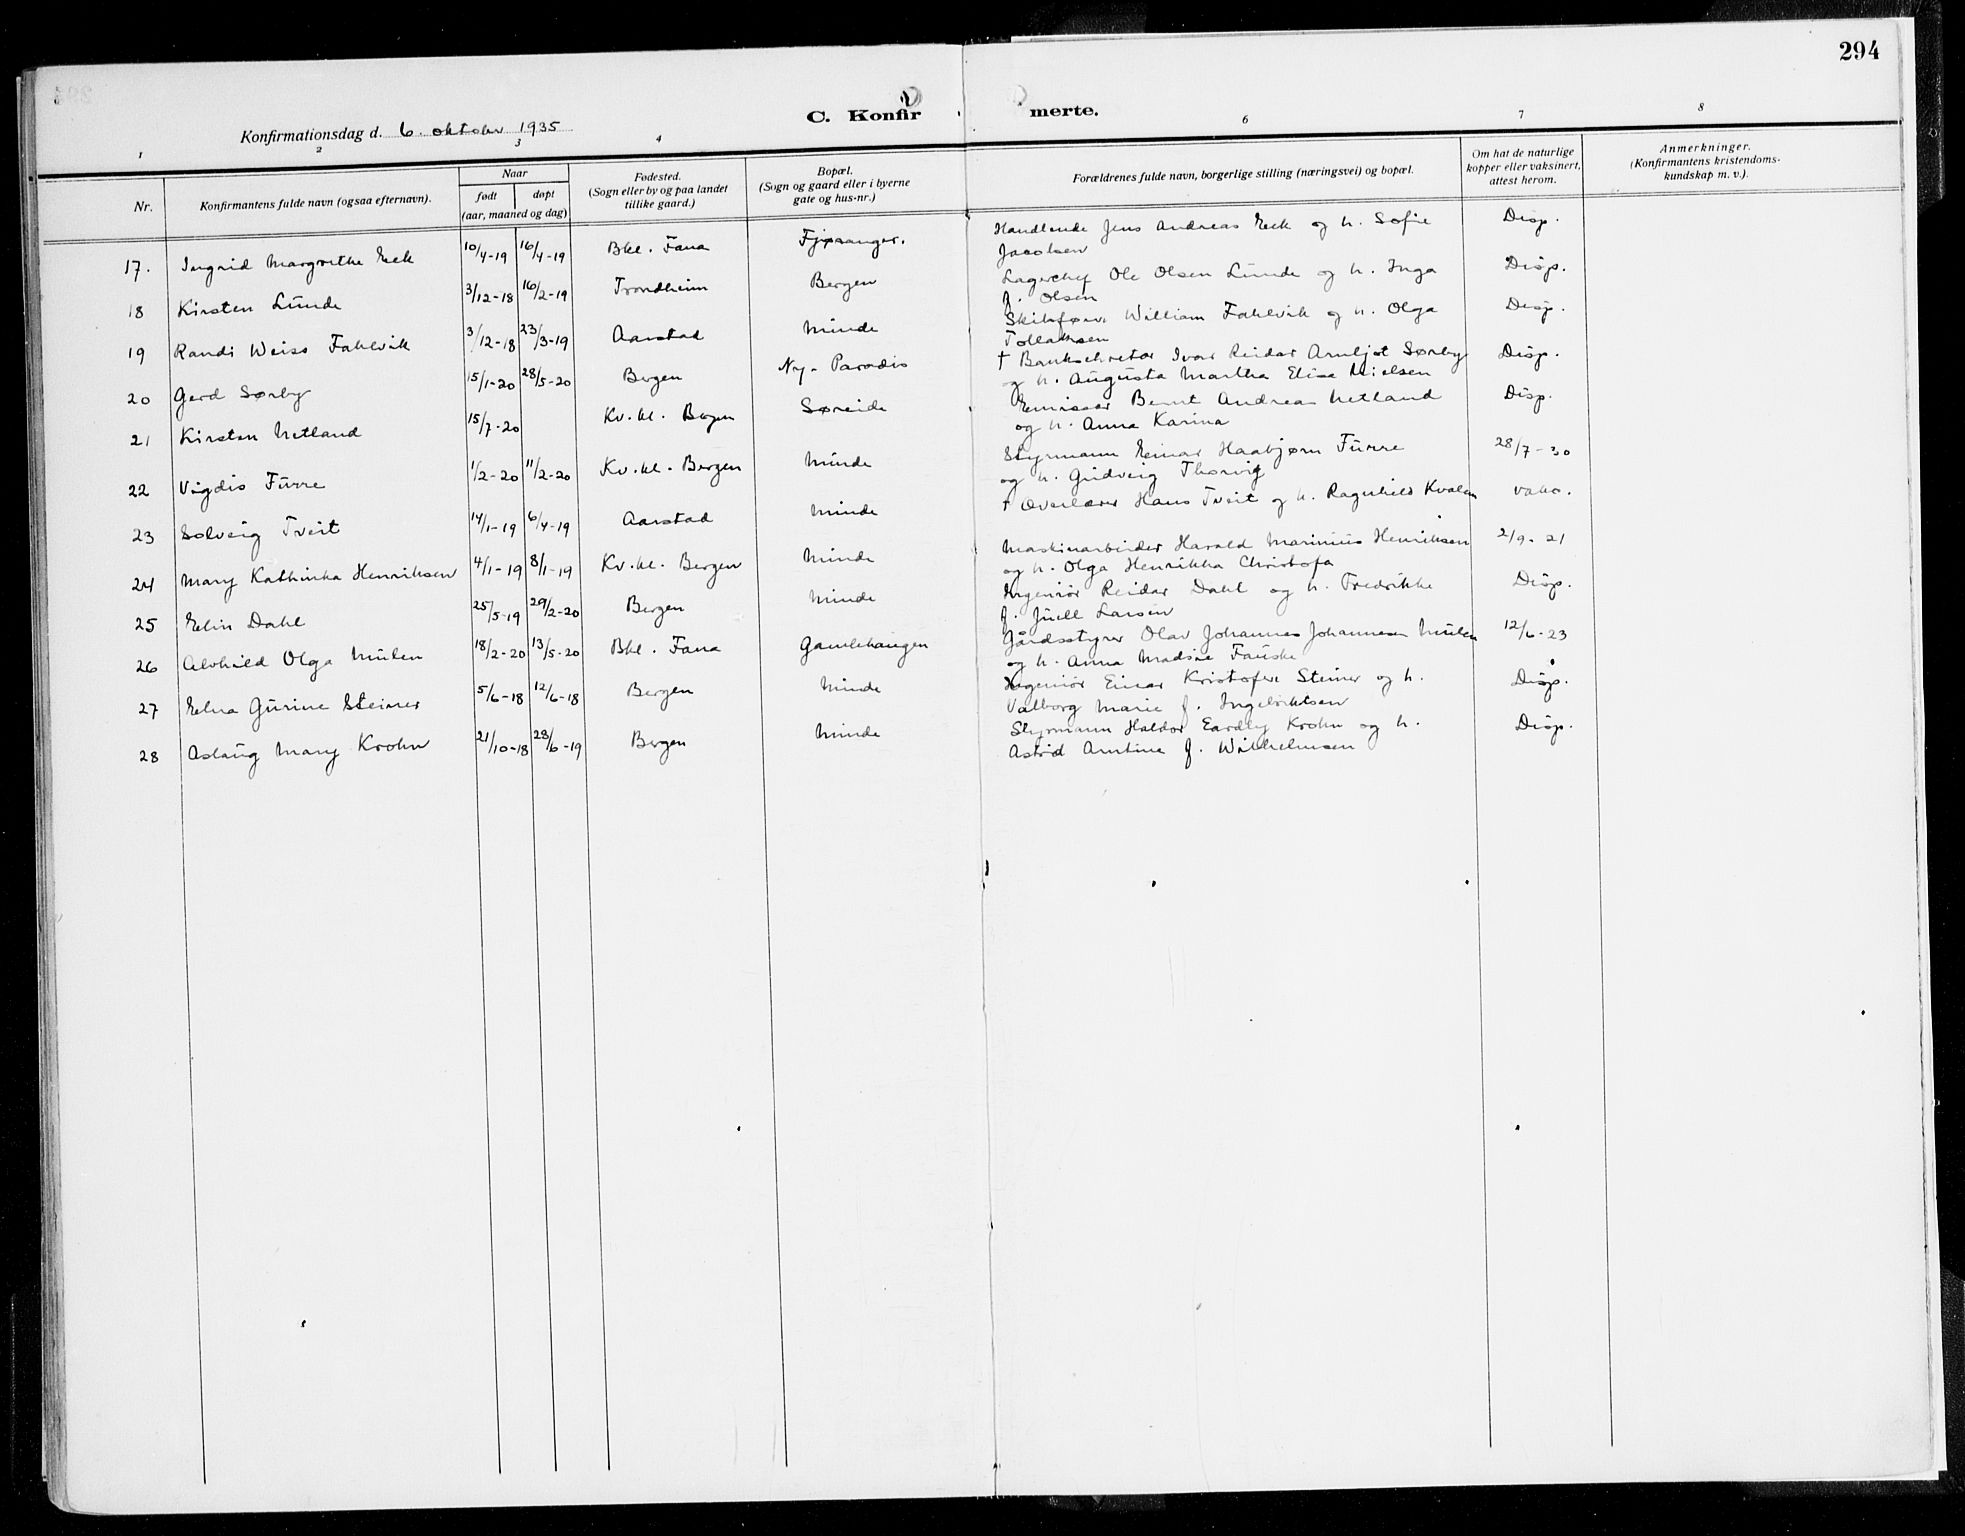 294
C. Konfirmerte.
Konfirmationsdag d. 6. oktober 1935
1 2 3 4 6 7 8
Nr.
Konfirmantens fulde navn (ogsaa efternavn).
Naar
født døpt
(aar, maaned og dag)
Fødested.
(Sogn eller by og paa landet
tillike gaard.)
Bopæl.
(Sogn og gaard eller i byerne
gate og hus-nr.)
Forældrenes fulde navn, borgerlige stilling (næringsvei) og bopæl.
Om hat de naturlige
kopper eller vaksinert,
attest herom.
Anmerkninger.
(Konfirmantens kristendoms-
kundskap m. v.).
17. Ingrid Margrethe Eek 10/4-19 16/4-19 Bkl. Fana Fjøsanger. Handlende Jens Andreas Eek og h. Sofie Disp.
Jacobsen
18 Kirsten Lunde 3/12-18 16/2-19 Trondheim Bergen Lagerchef Ole Olsen Lunde og h. Inga Disp.
f. Olsen
19 Randi Weiss Fahlvik 3/12-18 23/3-19 Aarstad Minde William Fahlvik og h. Olga Disp.
Tollaksen
20 Gerd Sørby 15/1-20 28/5-20 Bergen Ny-Paradis † Banksekretær Ivar Reidar Arnljot Sørby Disp.
og h. Augusta Martha Elise Nielsen
21 Kirsten Netland 15/7-20 Kv.kl. Bergen Søreide Emissær Bernt Andreas Netland Disp.
og h. Anna Karina
22 Vigdis Furre 1/2-20 11/2-20 Kv.kl. Bergen Minde Styrmann Einar Haabjørn Furre 28/7-30
og h. Gudveig Thorvig
23 Solveig Tveit 14/1-19 6/4-19 Aarstad Minde † Overlærer Hans Tveit og h. Ragnhild Kvalen vaks.
24 Mary Kathinka Henriksen 4/1-19 8/1-19 Kv.kl. Bergen Minde Maskinarbeider Harald Marinius Henriksen 2/9-21
og h. Olga Henrikka Christofa
25 Elin Dahl 25/5-19 29/2-20 Bergen Minde Ingeniør Reidar Dahl og h. Fredrikke Disp.
f. Juell Larsen
26 Alvhild Olga Mulen 18/2-20 13/5-20 Bkl. Fana Gamlehaugen Gårdsstyrer Olav Johannes Johannesen Mulen 12/6-23
og h. Anna Madsine Fauske
27 Elna Gurine Steiner 5/6-18 12/6-18 Bergen Minde Ingeniør Einar Kristofer Steiner og h. Disp.
Valborg Marie f. Ingebriktsen
28 Aslaug Mary Krohn 21/10-18 28/6-19 Bergen Minde Styrmann Haldor Eardley Krohn og h. Disp.
Astrid Amtine f. Wilhelmsen